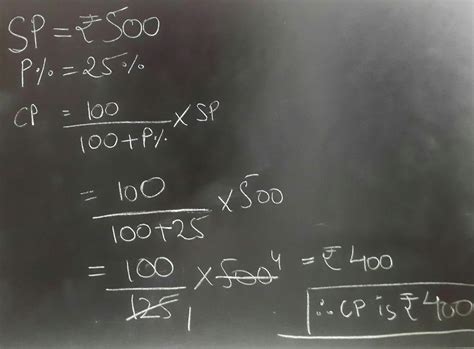 SP = ₹500
P% = 25%
CP = 100/100+P% × SP
= 100/100+25 × 500
= 100/125 × 500 4 = ₹400
1
∴ CP is ₹400